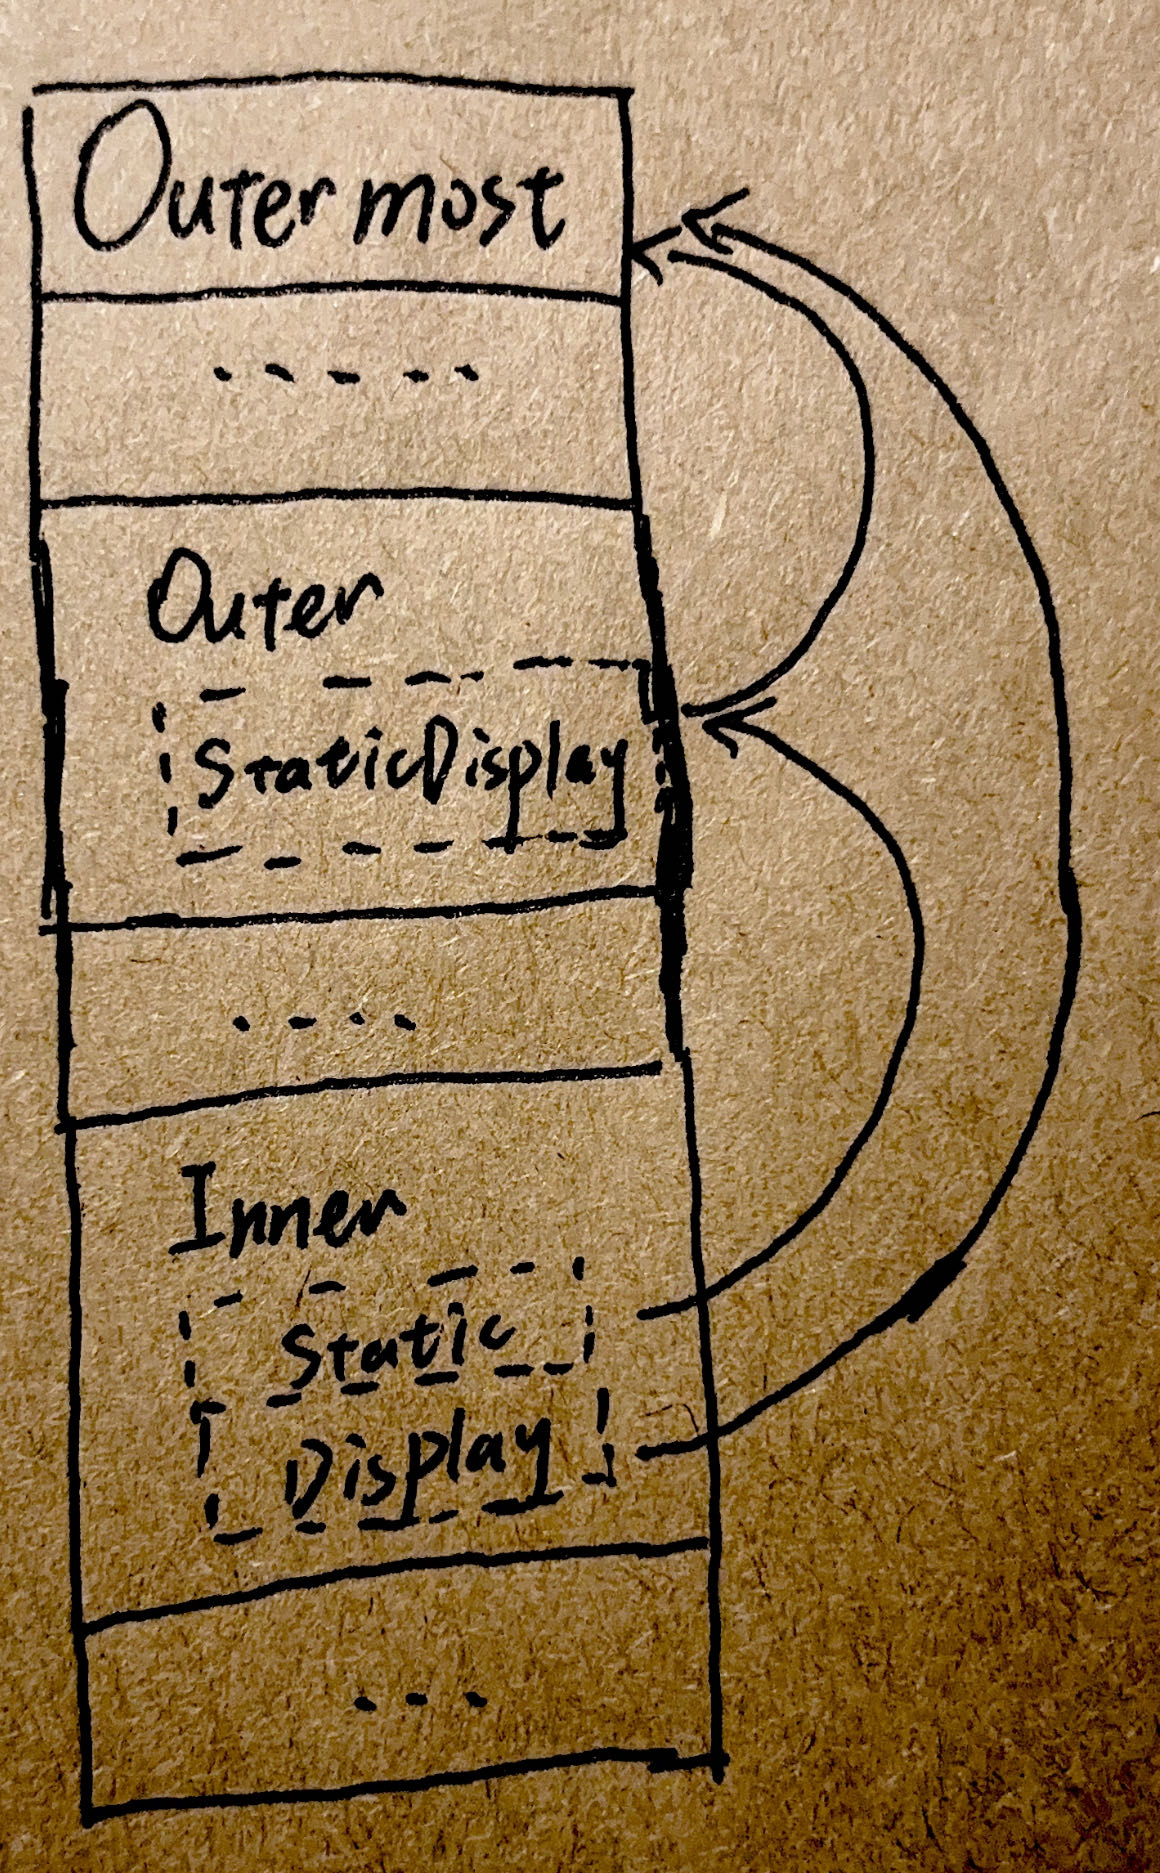 Outermost
.....
Outer
StaticDisplay
....
Inner
Static
Display
...